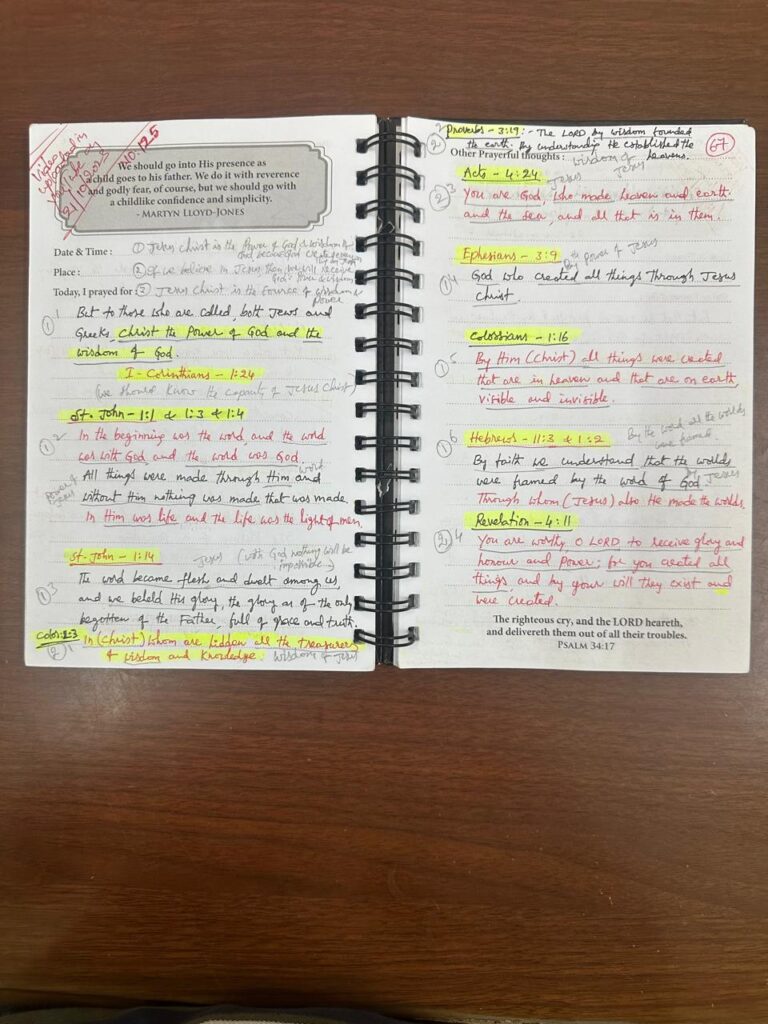 Video
21/10/2023
We should go into His presence as
a child goes to his father. We do it with reverence
and godly fear, of course, but we should go with
a childlike confidence and simplicity.
- MARTYN LLOYD-JONES
Date & Time : ① Jesus Christ is the Power of God & Wisdom of
God because God created
Place : ② If we believe in Jesus then we will receive
Today, I prayed for : ② Jesus Christ is the source of wisdom &
power
① 1 But to those who are called, both Jews and
Greeks, Christ the Power of God and the
wisdom of God.
I - Corinthians - 1:24
(we should know the capacity of Jesus Christ)
St. John - 1:1 & 1:3 & 1:4
① 2 In the beginning was the word, and the word
was with God, and the word was God.
All things were made through Him and word
Power of Jesus
without Him nothing was made that was made.
In Him was life and the life was the light of men.
St. John - 1:14 Jesus (with God nothing will be
impossible.)
① 3 The word became flesh and dwelt among us,
and we beheld His glory, the glory as of the only
begotten of the Father, full of grace and truth.
Colos: 2:3 In (Christ) whom are hidden all the treasurers
② 1 & wisdom and Knowledge. Wisdom of Jesus
② 2 Proverbs - 3:19 :- The LORD by wisdom founded
the earth. By understanding He established the
heavens.
67
Other Prayerful thoughts : wisdom of
Jesus
Acts - 4:24 Jesus
② 3 You are God, who made heaven and earth
and the sea, and all that is in them.
Ephesians - 3:9 By the power of Jesus
① 4 God who created all things Through Jesus
Christ.
Colossians - 1:16
① 5 By Him (Christ) all things were created
that are in heaven and that are on earth,
visible and invisible.
Hebrews - 11:3 & 1:2 By the word all the worlds
were framed.
① 6 By faith we understand that the worlds
were framed by the word of God Jesus
Through whom (Jesus) also He made the worlds.
Revelation - 4:11
② 4 You are worthy, O LORD to receive glory and
honour and power; for you created all
things, and by your will they exist and
were created.
The righteous cry, and the LORD heareth,
and delivereth them out of all their troubles.
PSALM 34:17